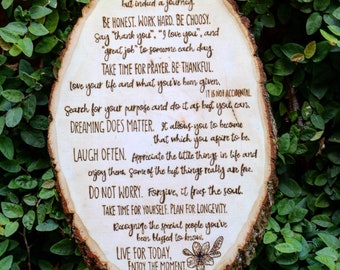 but indeed a journey.
BE HONEST. WORK HARD. BE CHOOSY.
Say "thank you", "I love you", and
"great job" to someone each day.
TAKE TIME FOR PRAYER. BE THANKFUL.
Love your life and what you've been given,
IT IS NOT ACCIDENTAL.
Search for your purpose and do it as best you can.
DREAMING DOES MATTER. It allows you to become
that which you aspire to be.
LAUGH OFTEN. Appreciate the little things in life and
enjoy them. Some of the best things really are free.
DO NOT WORRY. Forgive, it frees the soul.
TAKE TIME FOR YOURSELF. PLAN FOR LONGEVITY.
Recognize the special people you've
been blessed to know.
LIVE FOR TODAY,
ENJOY THE MOMENT.